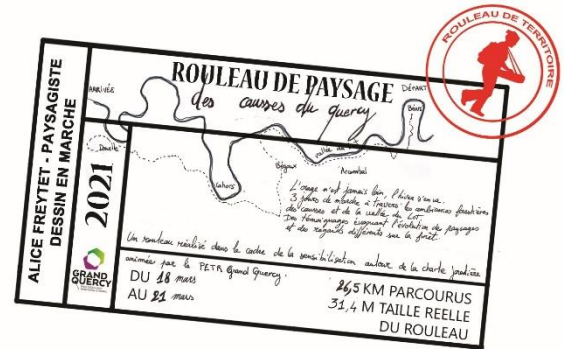 ROULEAU DE TERRITOIRE
ROULEAU DE PAYSAGE
des causses du quercy
ALICE FREYTET - PAYSAGISTE
DESSIN EN MARCHE
2021
GRAND
QUERCY
ARRIVÉE
DÉPART
Béars
Douelle
Cahors
Bégoux
vallée du
Arcambal
L'orage n'est jamais loin, l'hiver s'en va.
3 jours de marche à travers les ambiances forestières
des causses et de la vallée du Lot.
Des témoignages évoquant l'évolution des paysages
et des regards différents sur la forêt.
Un rouleau réalisé dans le cadre de la sensibilisation autour de la charte
animée par le PETR Grand Quercy.
DU 18 mars
AU 21 mars
26,5 KM PARCOURUS
31,4 M TAILLE REELLE
DU ROULEAU